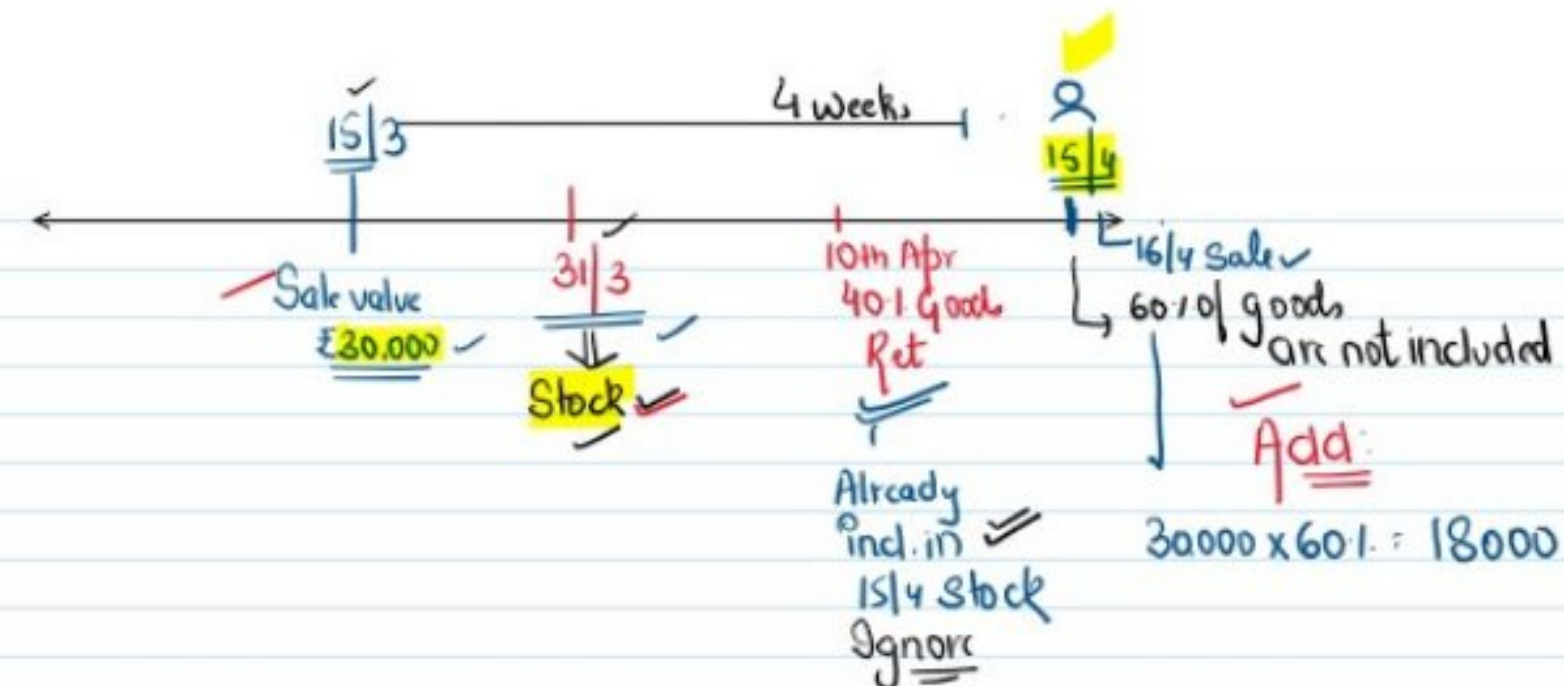 4 weeks
15/3
15/4
Sale value
₹30,000
31/3
Stock
10th Apr
40% Goods
Ret
Already
incl. in
15/4 Stock
Ignore
16/4 Sale
60% of goods
are not included
Add:
30000 x 60% = 18000